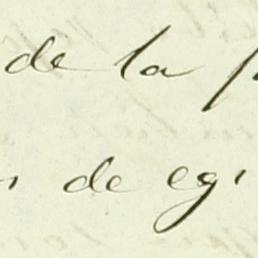 de la
de egi